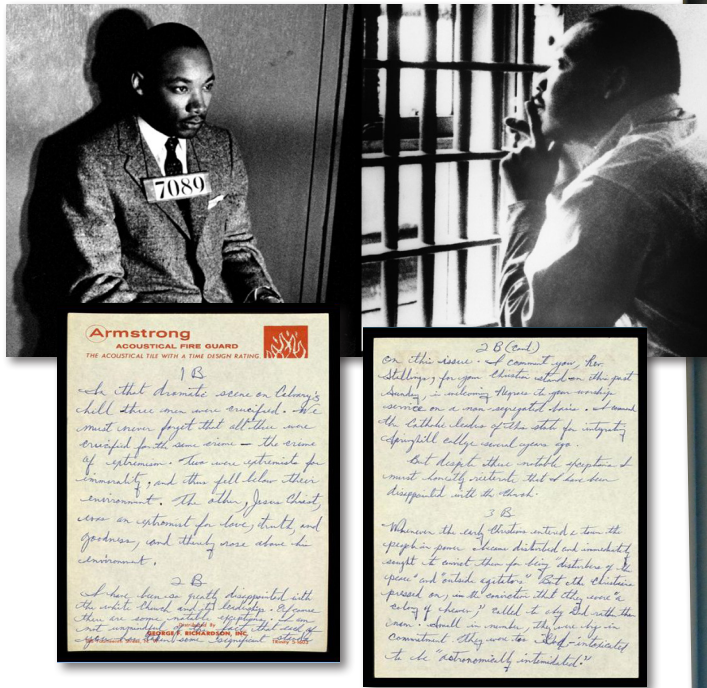 7089
Armstrong
ACOUSTICAL FIRE GUARD
THE ACOUSTICAL TILE WITH A TIME DESIGN RATING.
1 B
In that dramatic scene on Calvary's
hill three men were crucified. We
must never forget that all three were
crucified for the same crime — the crime
of extremism. Two were extremists for
immorality, and thus fell below their
environment. The other, Jesus Christ,
was an extremist for love, truth, and
goodness, and thereby rose above his
environment.
2 B
I have been so greatly disappointed with
the white Church and its leadership. Of course
there are some notable exceptions. I am
not unmindful of the fact that each of
you has taken some significant stands
Distributed By
GEORGE F. RICHARDSON, INC.
2 B (Cont)
on this issue. I commend you, Rev.
Stallings, for your Christian stand on this past
Sunday, in welcoming Negroes to your worship
service on a non-segregated basis. I commend
the Catholic leaders of this state for integrating
Springhill College several years ago.
But despite these notable exceptions I
must honestly reiterate that I have been
disappointed with the church.
3 B
Whenever the early Christians entered a town the
people in power became disturbed and immediately
sought to convict them for being "disturbers of the
peace" and "outside agitators." But the Christians
pressed on, in the conviction that they were "a
colony of heaven," called to obey God rather than
man. Small in number, they were big in
commitment. They were too God-intoxicated
to be "astronomically intimidated."